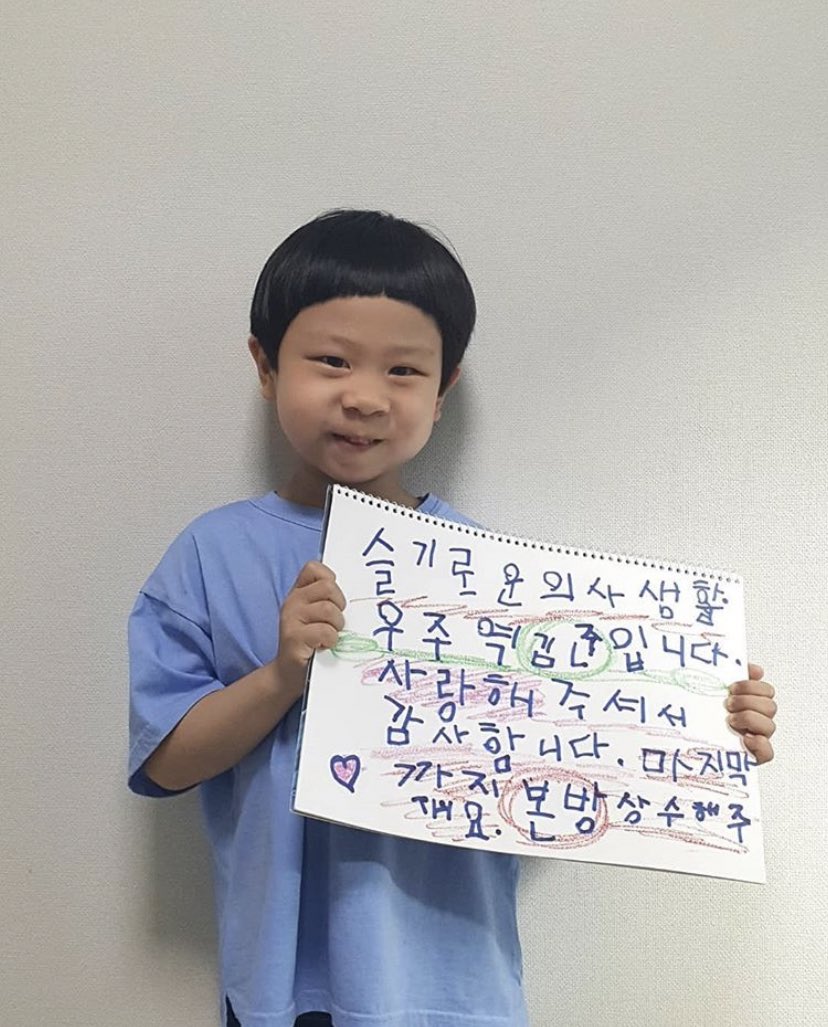 슬기로운의사생활.
우주역김준입니다.
사랑해주셔서
감사합니다. 마지막
까지 본방상수해주
재요.